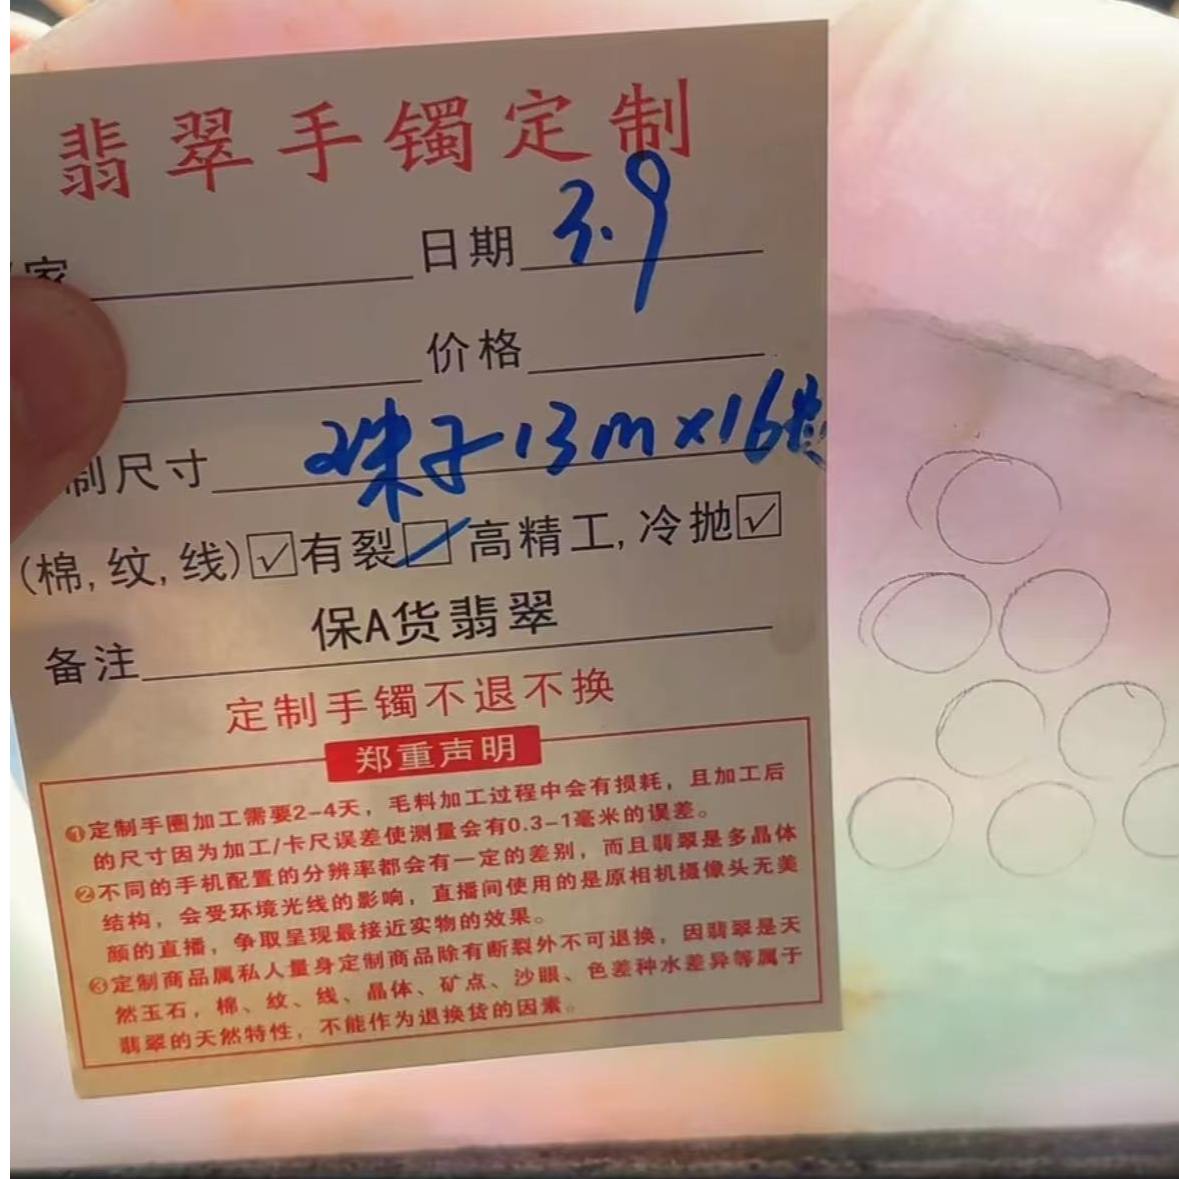 翡翠手镯定制
家 日期 3.9
价格
制尺寸 珠子13m×16
(棉,纹,线)☑有裂☐高精工,冷抛☑
备注 保A货翡翠
定制手镯不退不换
郑重声明
①定制手圈加工需要2-4天，毛料加工过程中会有损耗，且加工后
的尺寸因为加工/卡尺误差使测量会有0.3-1毫米的误差。
②不同的手机配置的分辨率都会有一定的差别，而且翡翠是多晶体
结构，会受环境光线的影响，直播间使用的是原相机摄像头无美
颜的直播，争取呈现最接近实物的效果。
③定制商品属私人量身定制商品除有断裂外不可退换，因翡翠是天
然玉石，棉、纹、线、晶体、矿点、沙眼、色差种水差异等属于
翡翠的天然特性，不能作为退换货的因素。